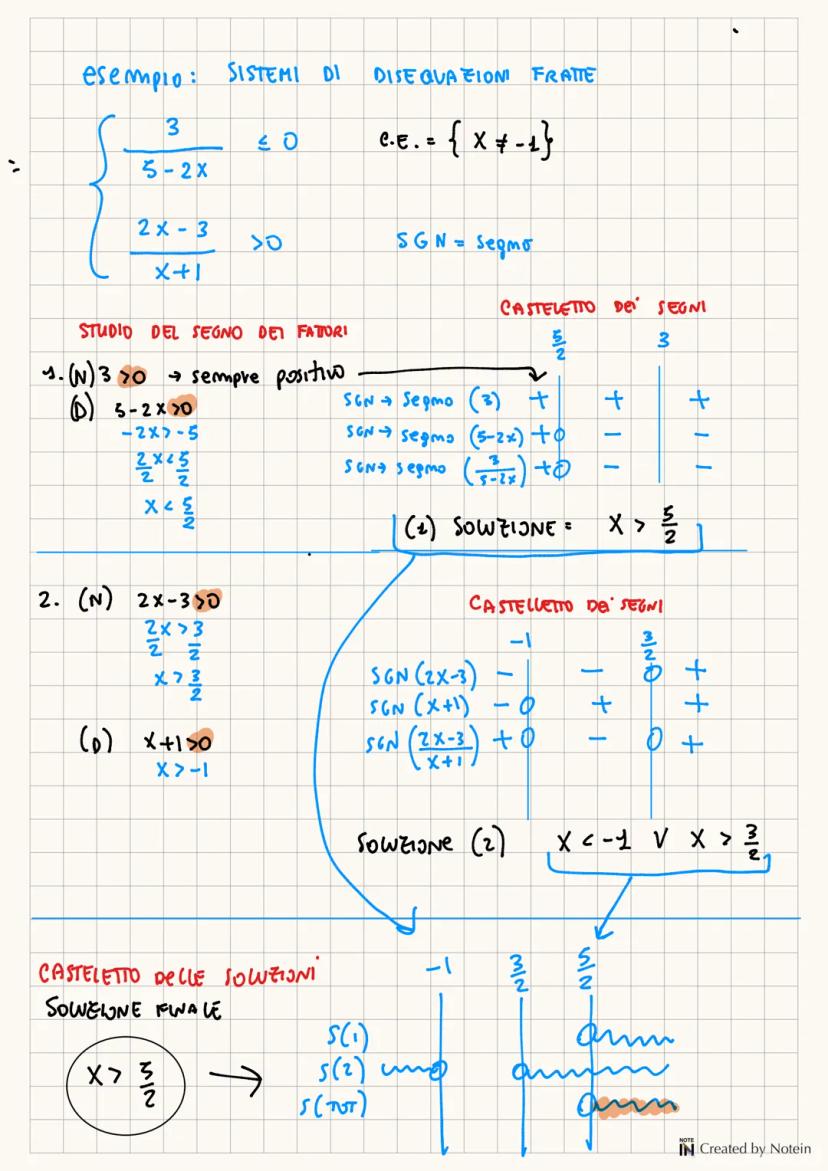 esempio: SISTEMI DI DISEQUAZIONI FRATTE
3 / 5-2x ≤ 0
C.E. = { x ≠ -1}
2x-3 / x+1 >0
SGN = segno
CASTELETTO DEi SEGNI
STUDIO DEL SEGNO DEI FATTORI
5/2 3
1. (N) 3 >0 → sempre positivo
SGN → segno (3) + + +
(D) 5-2x>0
-2x>-5
SGN → segno (5-2x) +0 - -
2x/2 < 5/2
SGN → segno (3/5-2x) +0 - -
x < 5/2
(1) SOLUZIONE = x > 5/2
2. (N) 2x-3>0
CASTELLETTO DEi SEGNI
2x/2 > 3/2
-1 3/2
x > 3/2
SGN (2x-3) - - 0 +
SGN (x+1) - 0 + +
(D) x+1>0
SGN (2x-3/x+1) + 0 - 0 +
x > -1
SOLUZIONE (2) x < -1 V x > 3/2
CASTELETTO DELLE SOLUZIONI
-1 3/2 5/2
SOLUZIONE FINALE
S(1)
x > 5/2 →
S(2)
S(TOT)
NOTE IN Created by Notein